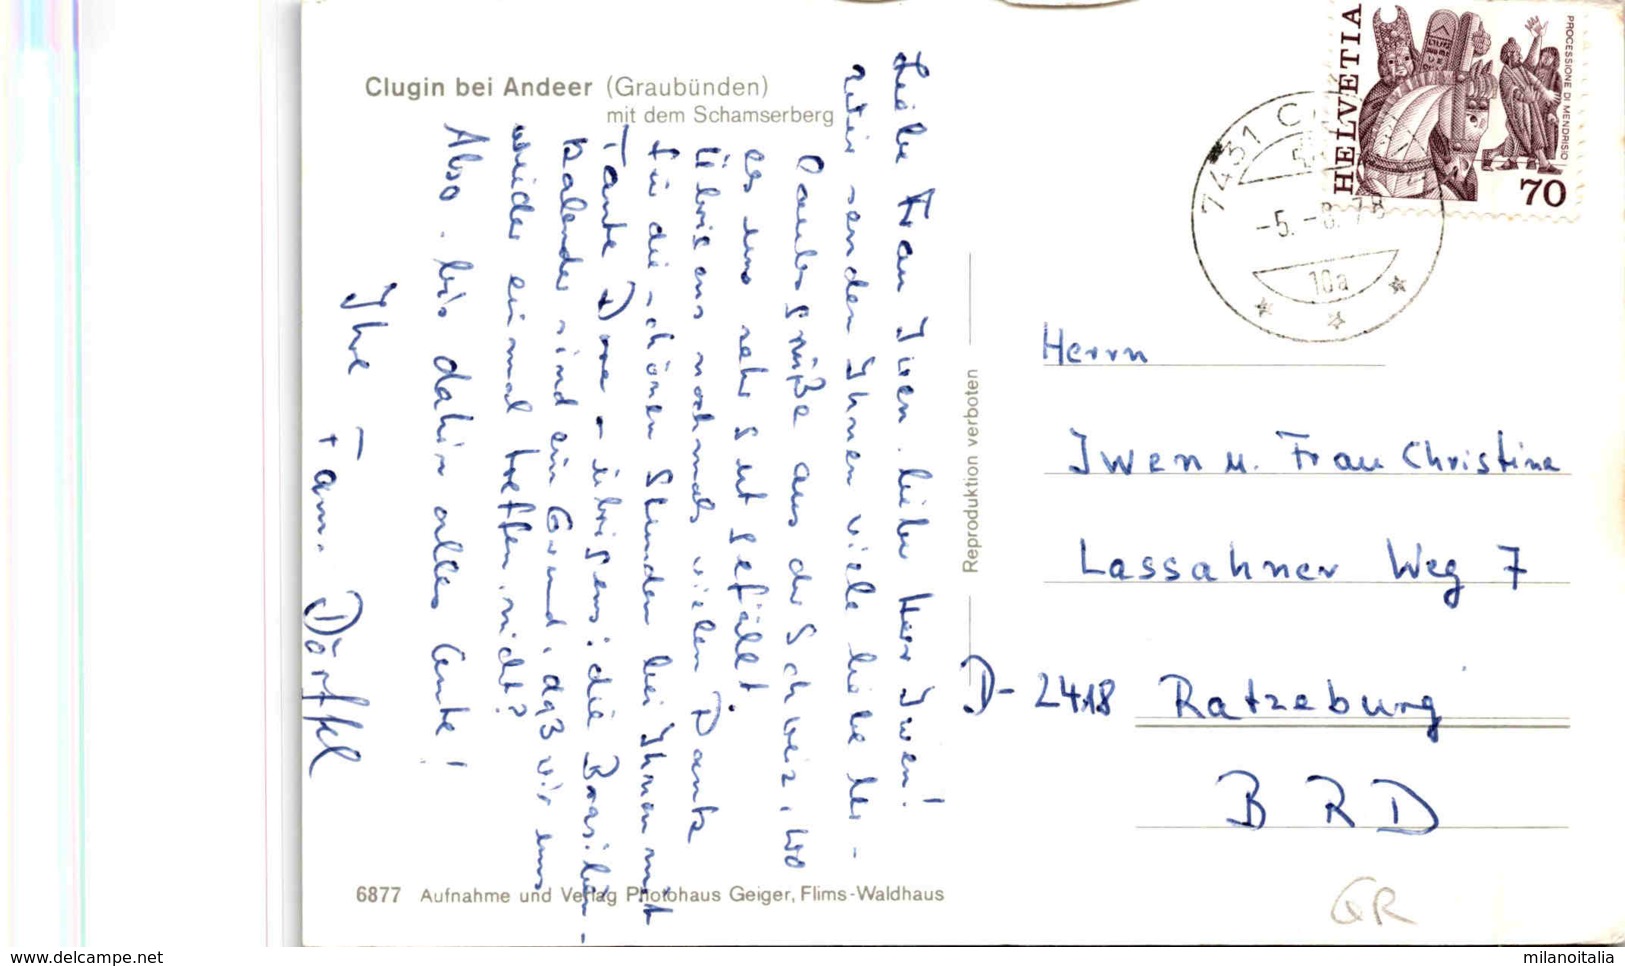 Clugin bei Andeer (Graubünden)
mit dem Schamserberg
Liebe Frau Iwen, lieber Herr Iwen!
wir senden Ihnen viele liebe
Urlaubsgrüße aus der Schweiz, wo
es uns sehr gut gefällt.
Übrigens nochmals vielen Dank
für die schönen Stunden bei Ihnen mit
Tante Dora - übrigens: die Brasilien-
Kalender sind ein Grund, daß wir uns
wieder einmal treffen, nicht?
Also, bis dahin alles Gute!
Ihre
Fam. Dörffel
6877 Aufnahme und Verlag Photohaus Geiger, Flims-Waldhaus
Reproduktion verboten
HELVETIA
PROCESSIONE DI MENDRISIO
70
7431
-5.-8.78
10a
Herrn
Iwen u. Frau Christine
Lassahner Weg 7
D-2418 Ratzeburg
BRD
GR
www.delcampe.net
milanoitalia